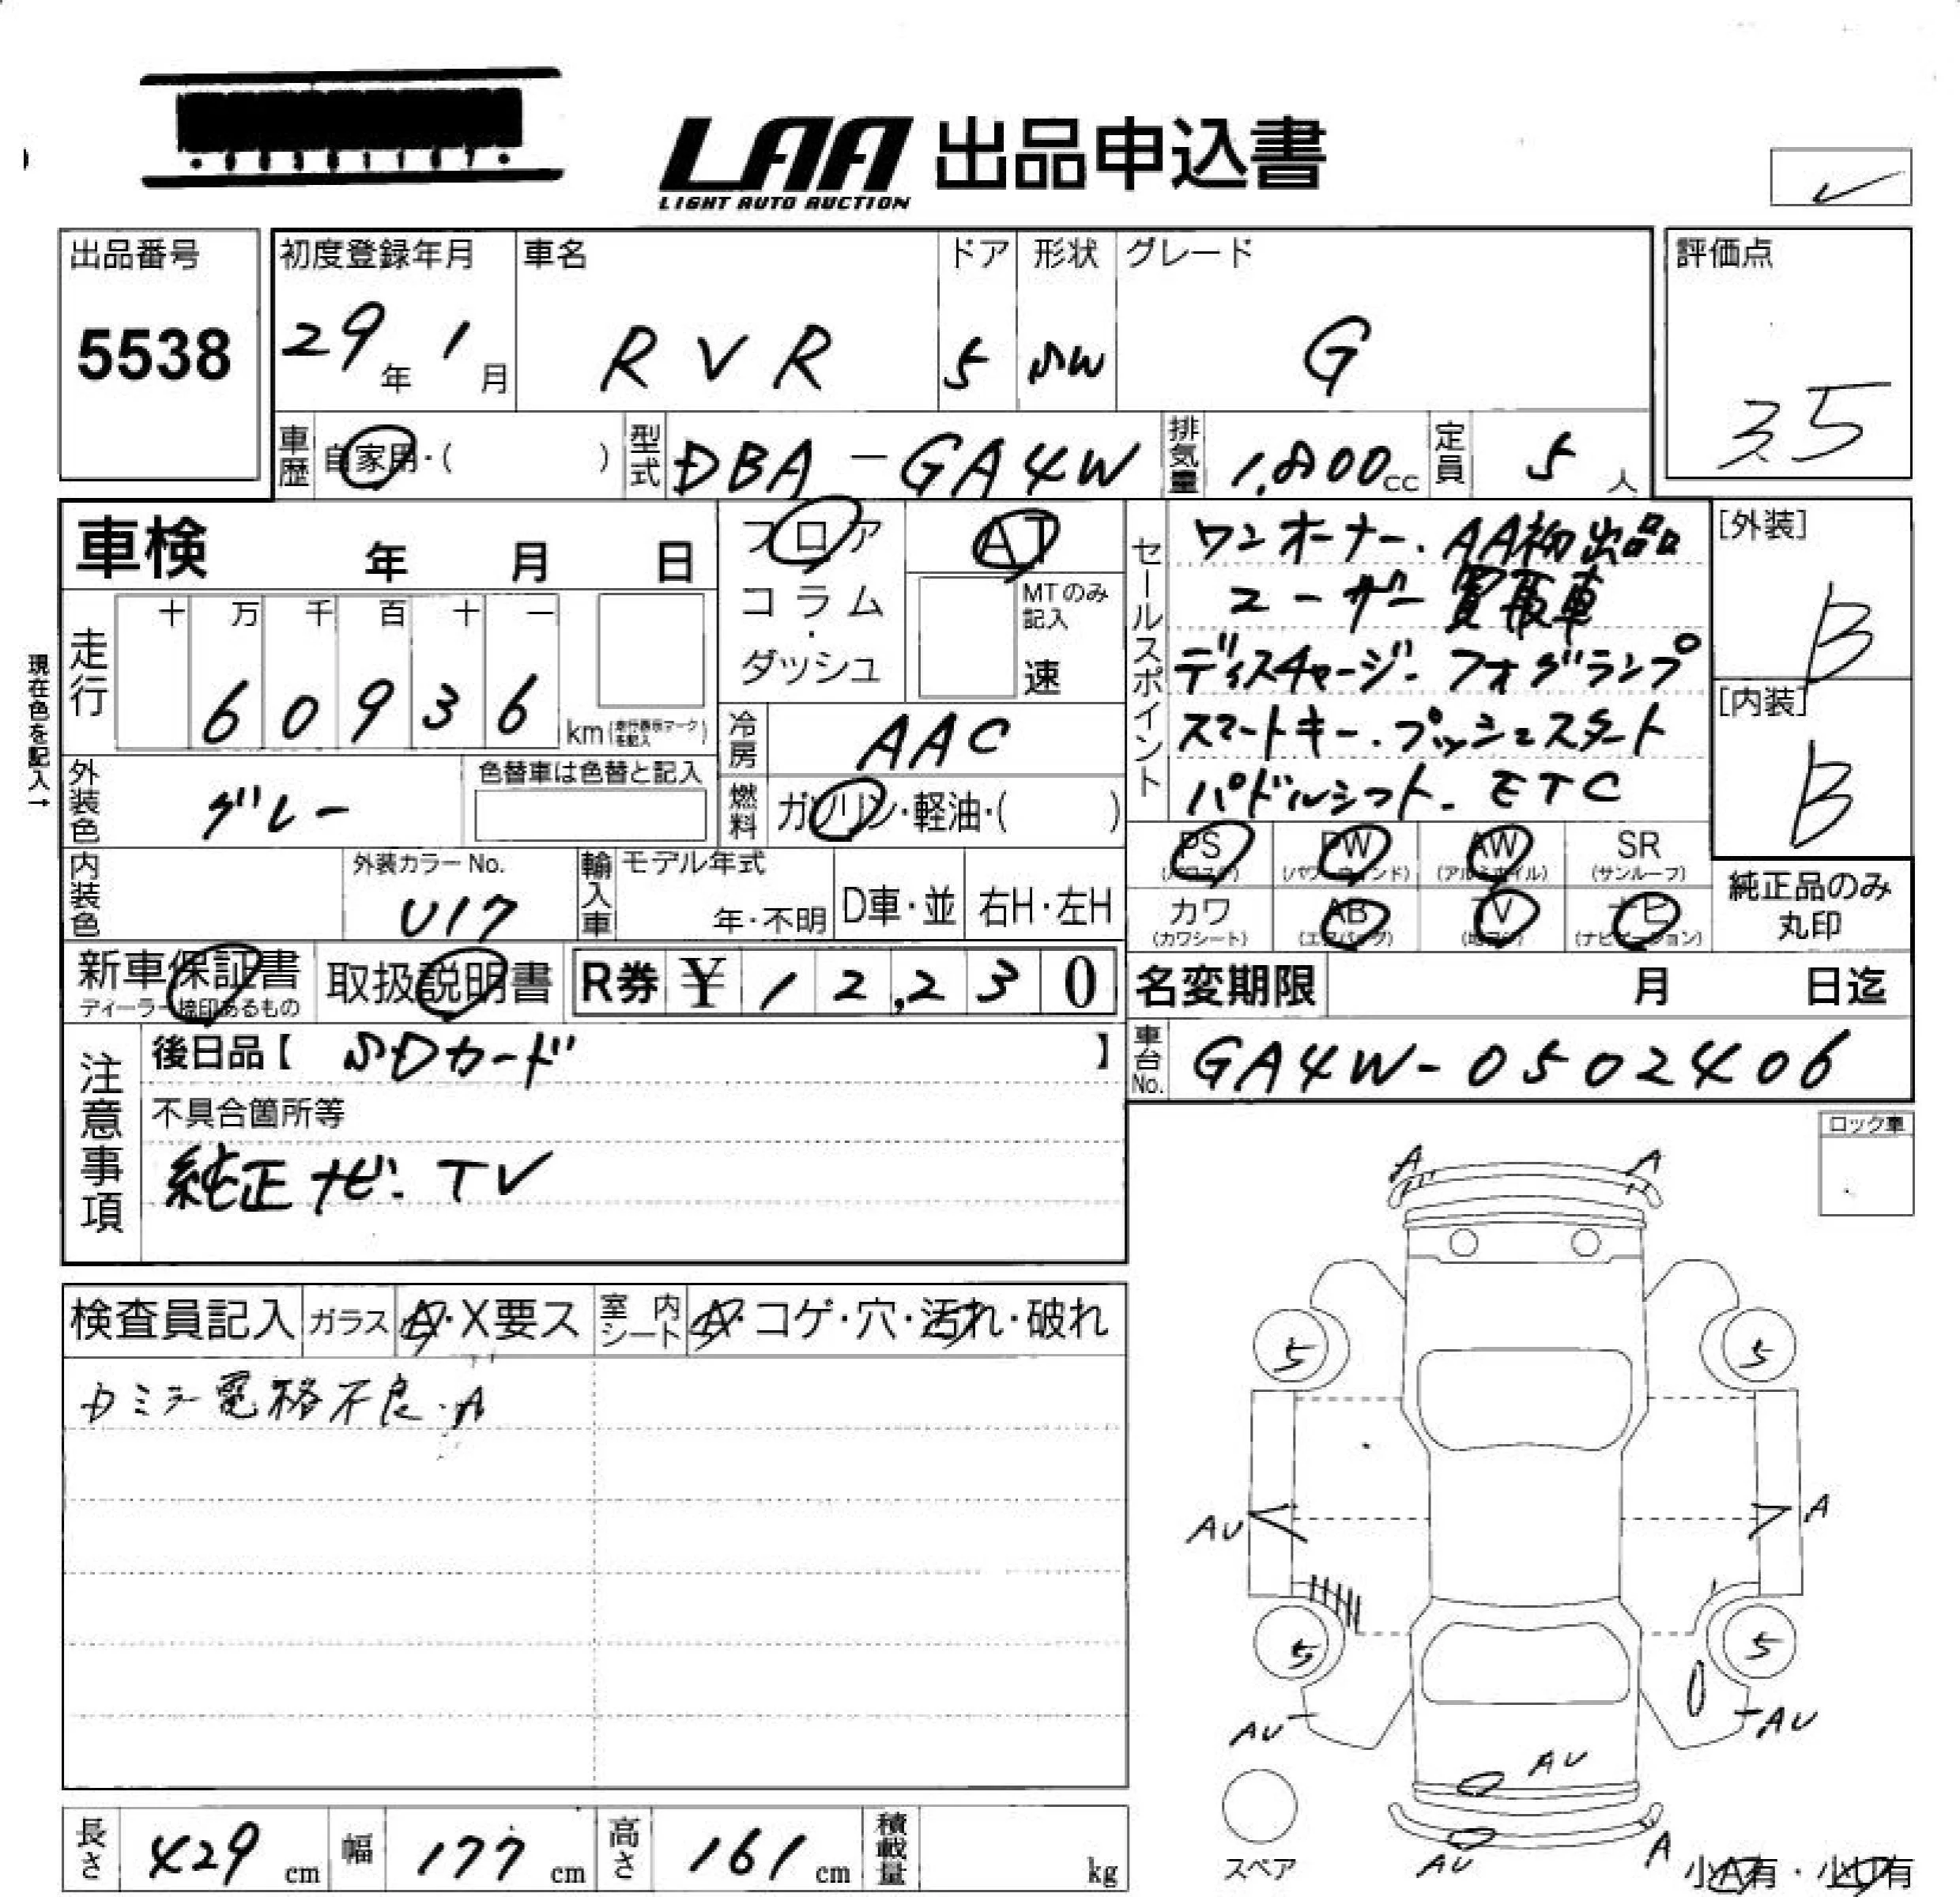 LAA 出品申込書
LIGHT AUTO AUCTION
出品番号
5538
初度登録年月
29年 1月
車名
RVR
ドア
5
形状
SW
グレード
G
評価点
3.5
車歴 自家用・( )
型式 DBA-GA4W
排気量 1,800cc
定員 5人
車検 年 月 日
フロア
コラム
・
ダッシュ
AT
MTのみ
記入
速
セールスポイント
ワンオーナー.AA初出品
ユーザー買取車
ディスチャージ.フォグランプ
スマートキー.プッシュスタート
パドルシフト.ETC
[外装]
B
[内装]
B
現在色を記入→
走行
十 万 千 百 十 一
6 0 9 3 6 km
冷房 AAC
外装色 グレー
色替車は色替と記入
燃料 ガソリン・軽油・( )
内装色
外装カラーNo.
U17
輸入車
モデル年式
年・不明
D車・並
右H・左H
PS
(パワステ)
PW
(パワーウィンド)
AW
(アルミホイル)
SR
(サンルーフ)
カワ
(カワシート)
AB
(エアバッグ)
TV
ナビ
(ナビゲーション)
純正品のみ
丸印
新車保証書
ディーラー捺印あるもの
取扱説明書
R券 ¥12,230
名変期限 月 日迄
注意事項
後日品【 SDカード 】
車台No. GA4W-0502406
不具合箇所等
純正ナビ.TV
ロック車
検査員記入
ガラス A・X要ス
室内シート A・コゲ・穴・汚れ・破れ
ミラー電格不良.A
A A
5 5
AU A
5 5
AU AU
AU
スペア
AU A
小A有・小U有
長さ 429 cm
幅 177 cm
高さ 161 cm
積載量 kg